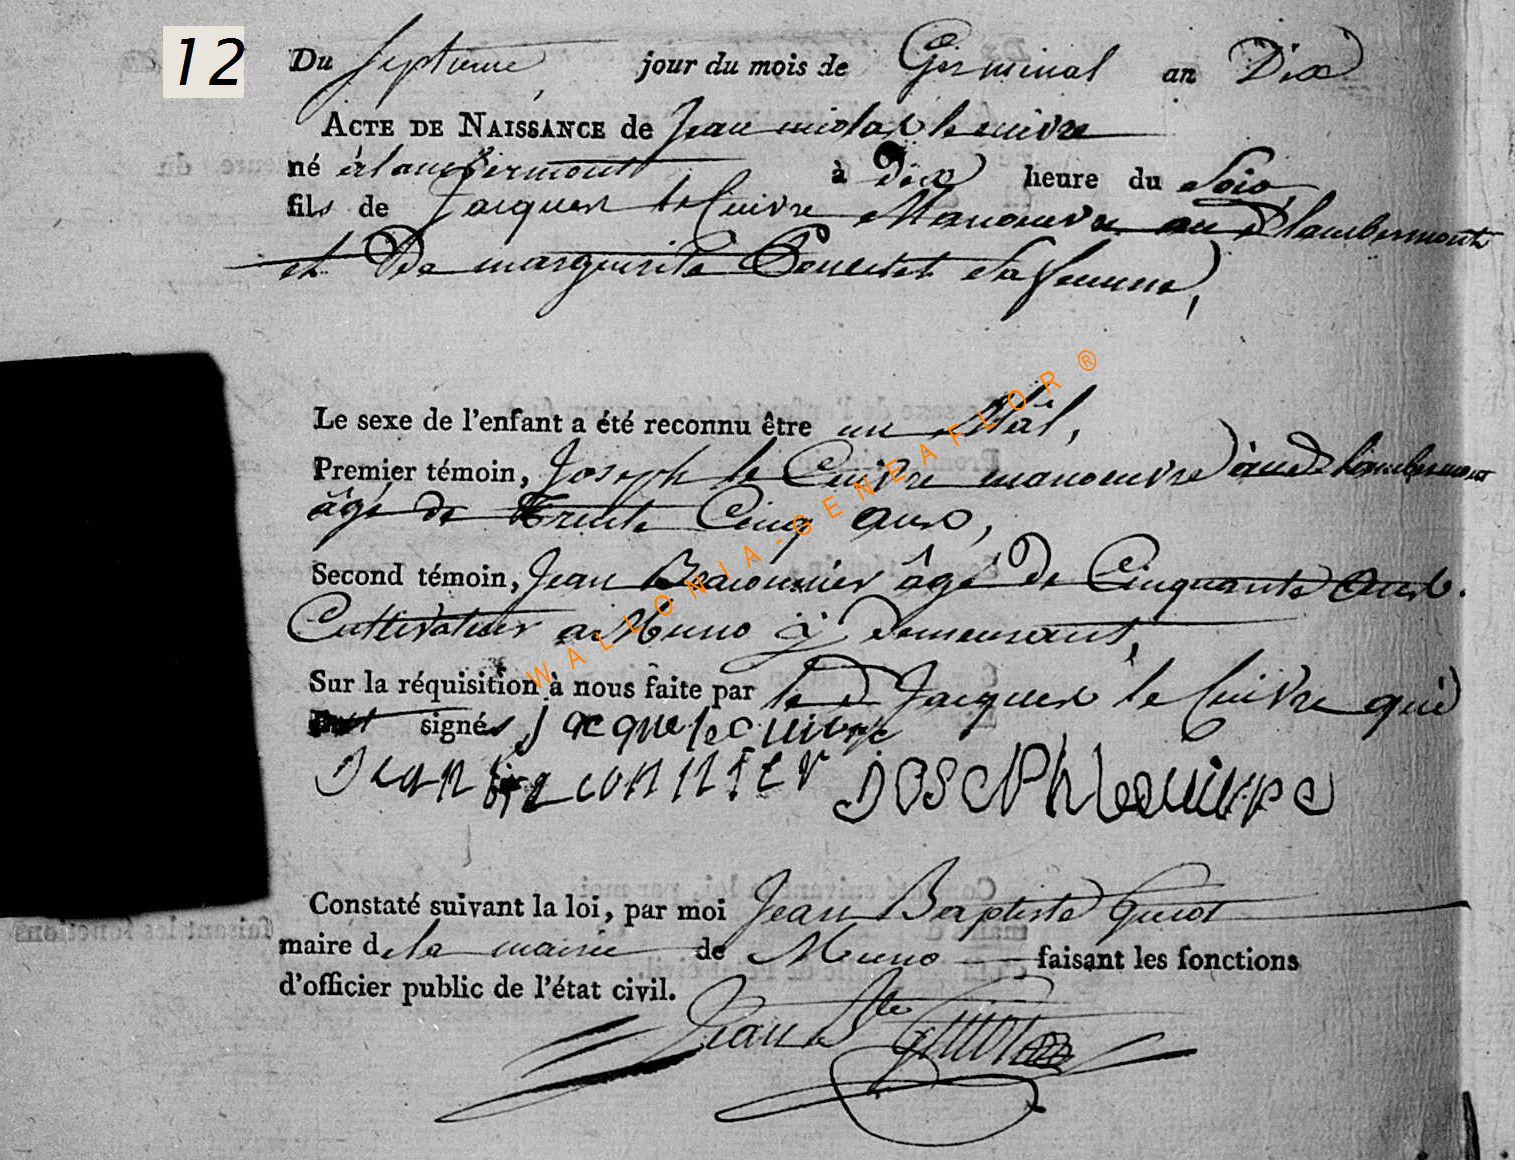 12
Du septieme jour du mois de Germinal an Dix
ACTE DE NAISSANCE de Jean nicolas le cuivre
né à lambermont à dix heure du Soir
fils de Jacques le Cuivre Manoeuvre au d lambermont
et De marguerite sa femme,
Le sexe de l'enfant a été reconnu être un Mâl,
Premier témoin, Joseph le Cuivre manoeuvre aud lambermont
âgé de Trente Cinq ans,
Second témoin, Jean Braconnier âgé de Cinquante ans.
Cultivateur a Muno y demeurant,
Sur la réquisition à nous faite par le d Jacques le Cuivre qui
signés jacque le cuivre
Jean braconnier Joseph le cuivre
Constaté suivant la loi, par moi Jean Baptiste Guiot
maire de la mairie de Muno faisant les fonctions
d'officier public de l'état civil.
Jean Bte Guiot
WALLONIA-GENEAFLOR®